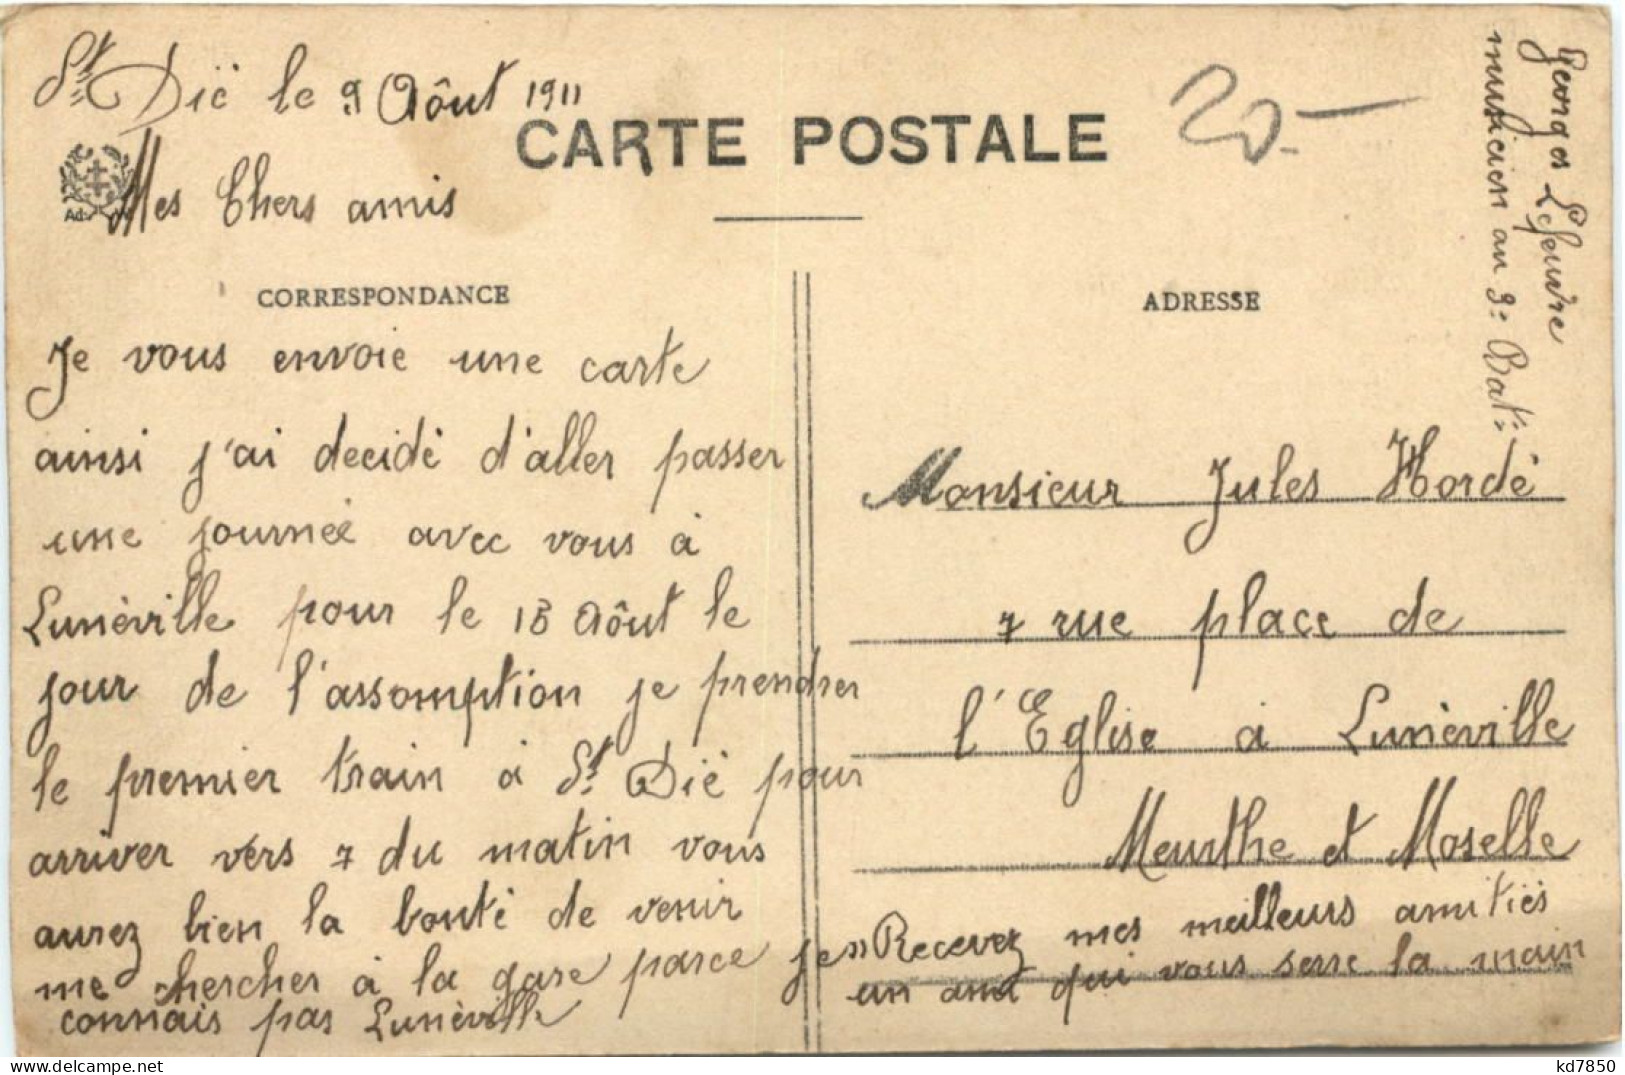 St Dié le 9 Aôut 1911
CARTE POSTALE
20.-
Mes Chers amis
CORRESPONDANCE
Je vous envoie une carte
ainsi j'ai decidé d'aller passer
une journeé avec vous à
Lunéville pour le 15 Aôut le
jour de l'assomption je prendrer
le premier train à St Dié pour
arriver vers 7 du matin vous
aurez bien la bonté de venir
me chercher à la gare parce je
connais pas Lunéville
ADRESSE
Monsieur Jules Hordé
7 rue place de
l'Eglise à Lunéville
Meurthe et Moselle
"Recevez mes meilleurs amitiés
un ami qui vous serre la main
Georges Lefeuvre
musicien au 3e Bat:
kd7850